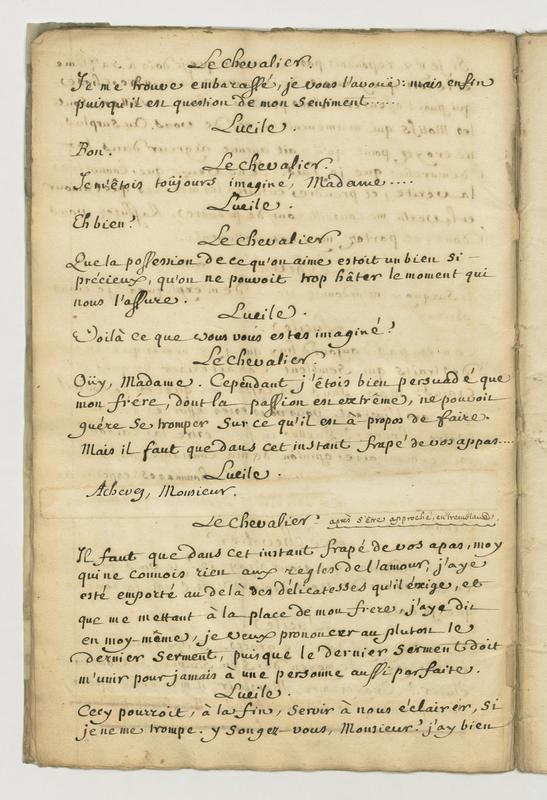 Le Chevalier.
Je me trouve embarassé, je vous l'avoüe: mais enfin
puisqu'il est question de mon sentiment.....
Lucile.
Bon.
Le Chevalier.
Je m'étois toûjours imaginé, Madame....
Lucile.
Eh bien?
Le Chevalier
Que la possession de ce qu'on aime estoit un bien si
précieux, qu'on ne pouvoit trop hâter le moment qui
nous l'assure.
Lucile.
Voilà ce que vous vous estes imaginé?
Le Chevalier
Oüy, Madame. Cependant j'étois bien persuadé que
mon frère, dont la passion est extrême, ne pouvoit
guére se tromper sur ce qu'il est à propos de faire.
Mais il faut que dans cet instant frapé de vos appas....
Lucile.
Achevez, Monsieur.
Le Chevalier après s'être approché, en tremblant
Il faut que dans cet instant frapé de vos apas, moy
qui ne connois rien aux regles de l'amour, j'aye
esté emporté au delà des délicatesses qu'il éxige, et
que me mettant à la place de mon frere, j'aye dit
en moy-même, je veux prononcer au plutost le
dernier serment, puisque le dernier serment doit
m'unir pour jamais à une personne aussi parfaite.
Lucile.
Cecy pourroit, à la fin, servir à nous éclairer, si
je ne me trompe. y songez-vous, Monsieur? j'ay bien